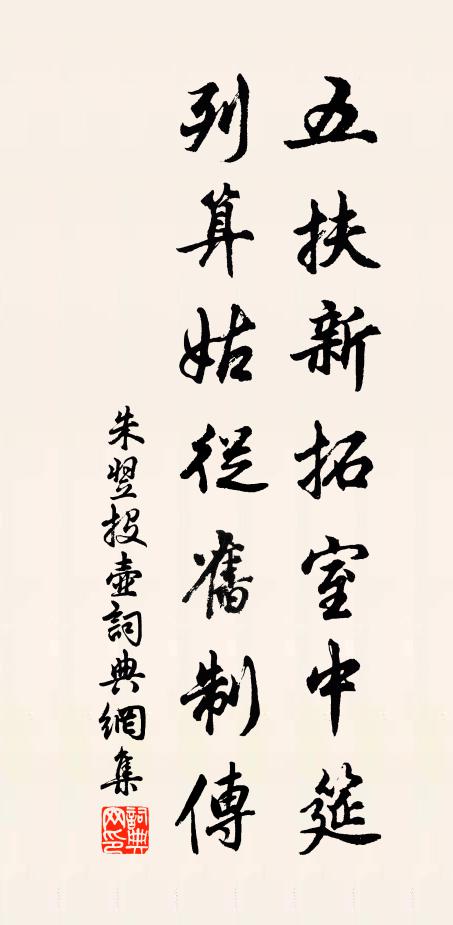 五扶新拓室中筵
列算姑從舊制傳
朱翌投壺詞典網集
詞典网印